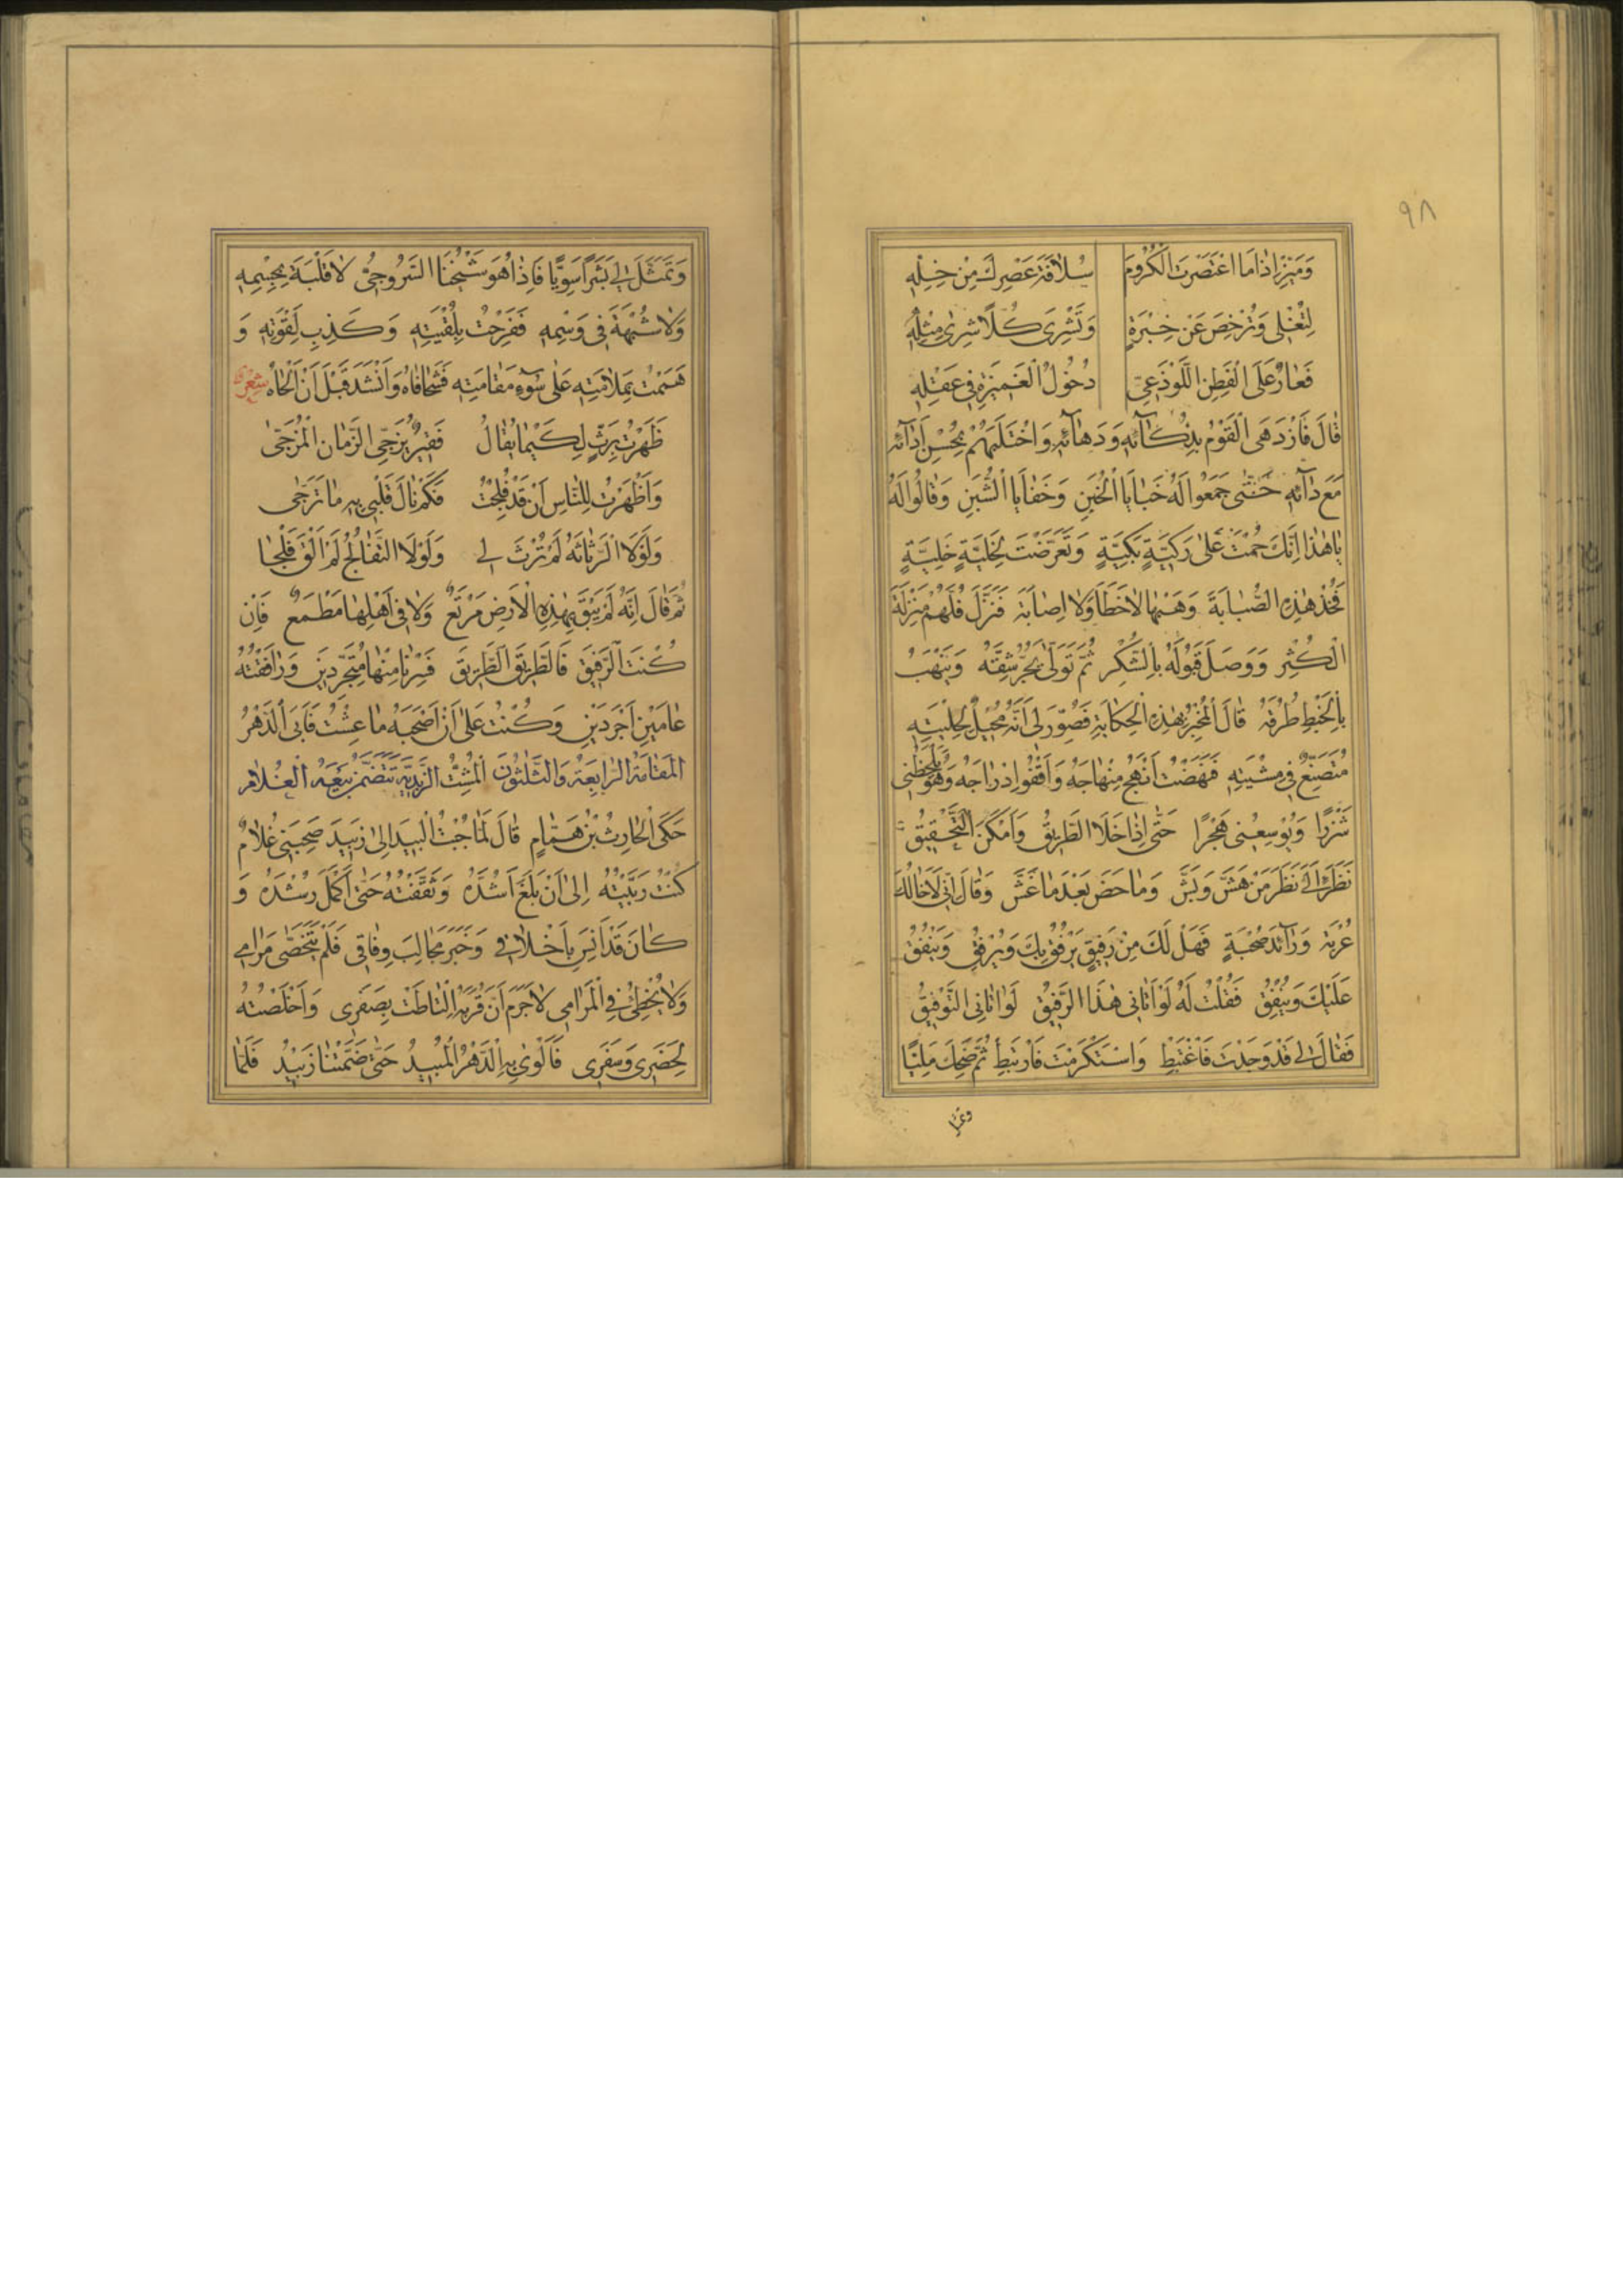 ٩٨
وَمَيِّزْ إِذَا مَا اعْتَصَرْتَ الْكُرُومَ سُلَافَةَ عَصْرِكَ مِنْ خِلِّهِ
لِتُغْلِي وَتُرْخِصَ عَنْ خِبْرَةٍ وَتَشْرِيَ كُلًّا شِرَى مِثْلِهِ
فَعَارٌ عَلَى الْفَطِنِ اللَّوْذَعِيِّ دُخُولُ الْغَمِيزَةِ فِي عَقْلِهِ
قَالَ فَازْدَهَى الْقَوْمُ بِذَكَآئِهِ وَدَهَآئِهِ وَاخْتَلَبَهُمْ بِحُسْنِ أَدَآئِهِ
مَعَ دَآئِهِ حَتَّى جَمَعُوا لَهُ خَبَايَا الْخُبَنِ وَخَفَايَا الثُّبَنِ وَقَالُوا لَهُ
يَا هَذَا إِنَّكَ حُمْتَ عَلَى رَكِيَّةٍ بَكِيَّةٍ وَتَعَرَّضْتَ لِخَلِيَّةٍ خَلِيَّةٍ
فَخُذْ هَذِهِ الصُّبَابَةَ وَهَبْهَا لَا خَطَأً وَلَا إِصَابَةً فَنَزَّلَ قُلَّهُمْ مَنْزِلَةَ
الْكُثْرِ وَوَصَلَ قَبُولَهُ بِالشُّكْرِ ثُمَّ تَوَلَّى يَجُرُّ شِقَّهُ وَيَنْهَبُ
بِالْخَبْطِ طُرْقَهُ قَالَ الْمُخْبِرُ بِهَذِهِ الْحِكَايَةِ فَصُوِّرَ لِي أَنَّهُ مُحِيلٌ لِحِلْيَتِهِ
مُتَصَنِّعٌ فِي مِشْيَتِهِ فَنَهَضْتُ أَنْهَجُ مِنْهَاجَهُ وَأَقْفُو أَدْرَاجَهُ وَهُوَ يَلْحَظُنِي
شَزْرًا وَيُوسِعُنِي هَجْرًا حَتَّى إِذَا خَلَا الطَّرِيقُ وَأَمْكَنَ التَّحْقِيقُ
نَظَرَ إِلَيَّ نَظَرَ مَنْ هَشَّ وَبَشَّ وَمَاحَضَ بَعْدَ مَا غَشَّ وَقَالَ إِنِّي لَإِخَالُكَ
غُرْبَةٍ وَرَآئِدَ صُحْبَةٍ فَهَلْ لَكَ مِنْ رَفِيقٍ يَرْفُقُ بِكَ وَيُرْفِقُ وَيَنْفُقُ
عَلَيْكَ وَيُنْفِقُ فَقُلْتُ لَهُ لَوْ أَتَانِي هَذَا الرَّفِيقُ لَوَاتَانِي التَّوْفِيقُ
فَقَالَ لِي قَدْ وَجَدْتَ فَاغْتَبِطْ وَاسْتَكْرَمْتَ فَارْتَبِطْ ثُمَّ ضَحِكَ مَلِيًّا
وَتَمَثَّلَ لِي بَشَرًا سَوِيًّا فَإِذَا هُوَ شَيْخُنَا السَّرُوجِيُّ لَا قَلَبَةَ بِجِسْمِهِ
وَلَا شُبْهَةَ فِي وَسْمِهِ فَفَرِحْتُ بِلُقْيَتِهِ وَكَذِبِ لَقْوَتِهِ وَ
هَمَمْتُ بِمَلَامَتِهِ عَلَى سُوءِ مَقَامَتِهِ فَشَحَا فَاهُ وَأَنْشَدَ قَبْلَ أَنْ أَلْحَاهُ شِعْر
ظَهَرْتُ بِرَثٍّ لِكَيْمَا يُقَالُ فَقِيرٌ يُزَجِّي الزَّمَانَ الْمُزَجَّى
وَأَظْهَرْتُ لِلنَّاسِ أَنْ قَدْ فُلِجْتُ فَكَمْ نَالَ قَلْبِي بِهِ مَا تَرَجَّى
وَلَوْلَا الرَّثَاثَةُ لَمْ يُرْثَ لِي وَلَوْلَا التَّفَالُجُ لَمْ أَلْقَ فُلْجَا
ثُمَّ قَالَ إِنَّهُ لَمْ يَبْقَ بِهَذِهِ الْأَرْضِ مَرْتَعٌ وَلَا فِي أَهْلِهَا مَطْمَعٌ فَإِنْ
كُنْتَ الرَّفِيقَ فَالطَّرِيقَ الطَّرِيقَ فَسِرْنَا مِنْهَا مُتَجَرِّدَيْنِ وَرَافَقْتُهُ
عَامَيْنِ أَجْرَدَيْنِ وَكُنْتُ عَلَى أَنْ أَصْحَبَهُ مَا عِشْتُ فَأَبَى الدَّهْرُ
الْمَقَامَةُ الرَّابِعَةُ وَالثَّلَاثُونَ الزَّبِيدِيَّة تَتَضَمَّنُ بَيْعَهُ الْغُلَام
حَكَى الْحَارِثُ بْنُ هَمَّامٍ قَالَ لَمَّا جُبْتُ الْبِيدَ إِلَى زَبِيدَ صَحِبَنِي غُلَامٌ
كُنْتُ رَبَّيْتُهُ إِلَى أَنْ بَلَغَ أَشُدَّهُ وَثَقَّفْتُهُ حَتَّى أَكْمَلَ رُشْدَهُ وَ
كَانَ قَدْ أَنِسَ بِأَخْلَاقِي وَخَبَرَ مَجَالِبَ وِفَاقِي فَلَمْ يَتَخَطَّ مَرَامِي
وَلَا يُخْطِئُ فِي الْمَرَامِي لَا جَرَمَ أَنَّ قُرْبَهُ الْتَاطَتْ بِصَفَرِي وَأَخْلَصْتُهُ
لِحَضَرِي وَسَفَرِي فَأَلْوَى بِهِ الدَّهْرُ الْمُبِيدُ حَتَّى ضَمَّتْنَا زَبِيدُ فَلَمَّا